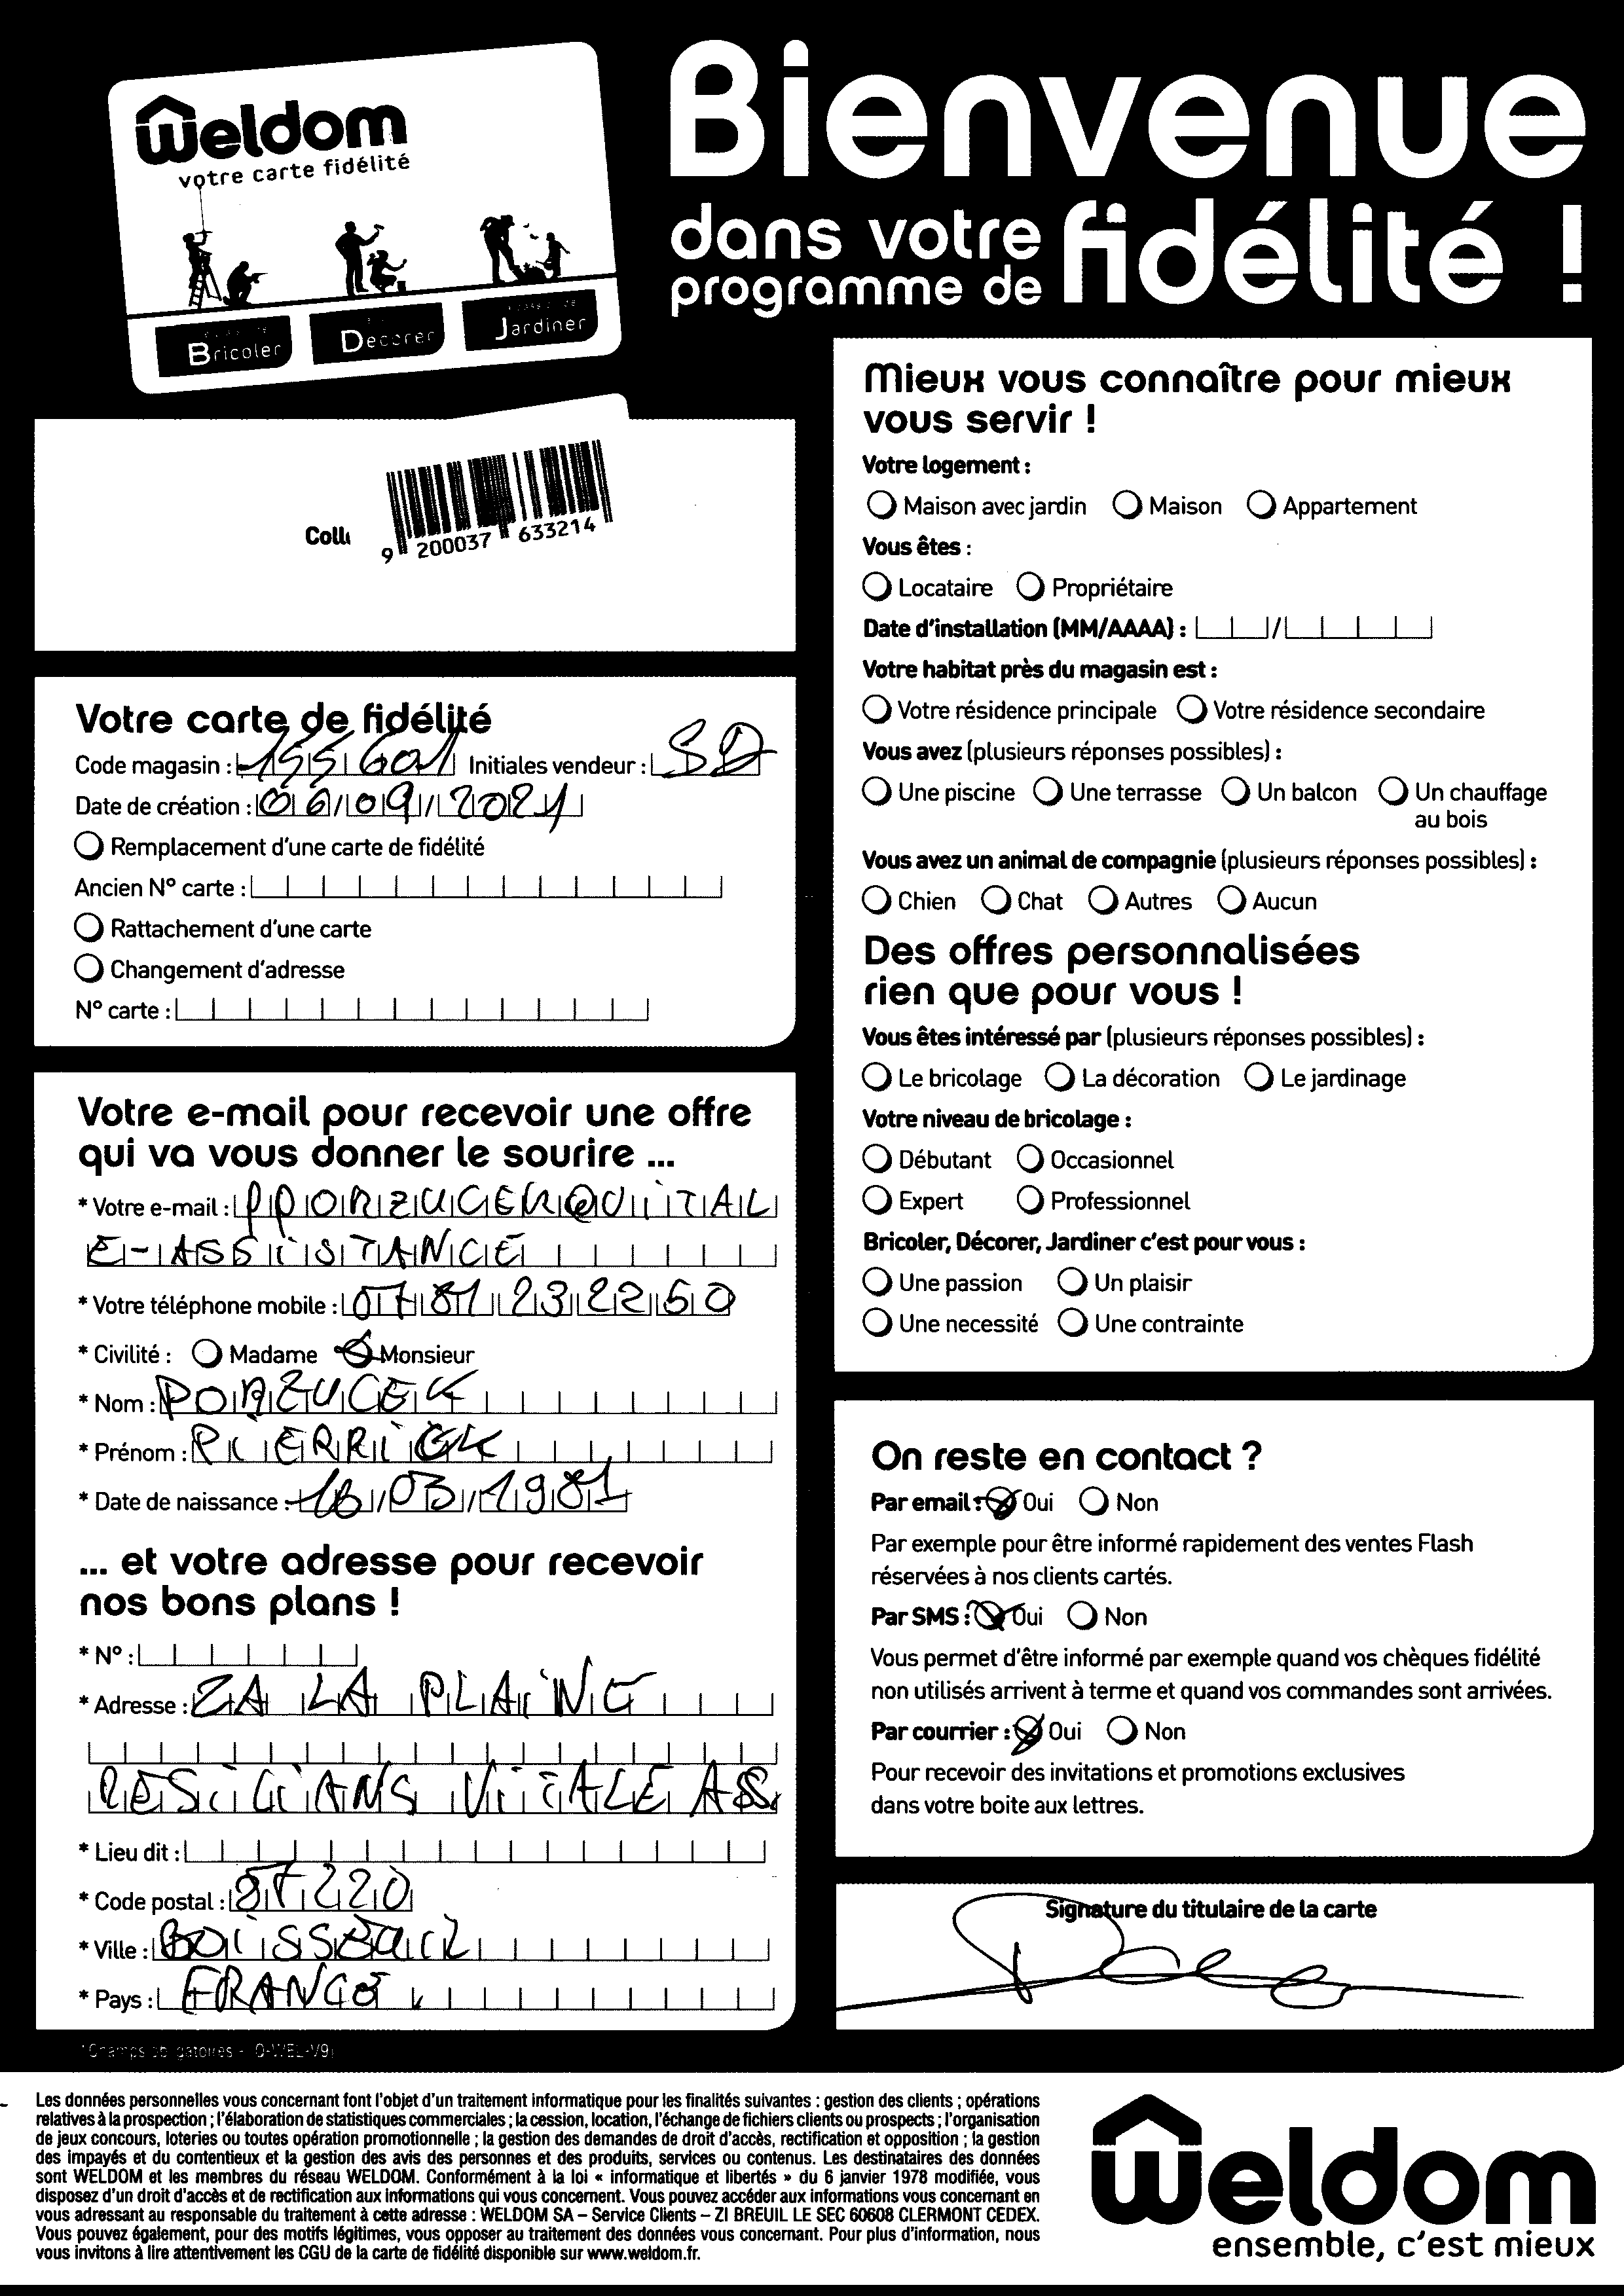 weldom
votre carte fidélité
Bricoler
Décorer
Jardiner
Bienvenue
dans votre
programme de
fidélité !
9 200037 633214
Votre carte de fidélité
Code magasin : 155601 Initiales vendeur : SD
Date de création : 06/09/2021
Remplacement d'une carte de fidélité
Ancien N° carte :
Rattachement d'une carte
Changement d'adresse
N° carte :
Votre e-mail pour recevoir une offre
qui va vous donner le sourire ...
* Votre e-mail : PPORZUCEK@VITAL
E-ASSISTANCE
* Votre téléphone mobile : 07 81 23 22 50
* Civilité : Madame Monsieur
* Nom : PORZUCEK
* Prénom : PIERRICK
* Date de naissance : 16/03/1981
... et votre adresse pour recevoir
nos bons plans !
* N° :
* Adresse : ZA LA PLAINE
VITALE
* Lieu dit :
* Code postal : 87220
* Ville : BOISSEUIL
* Pays : FRANCE
*Champs obligatoires -
Mieux vous connaître pour mieux
vous servir !
Votre logement :
Maison avec jardin Maison Appartement
Vous êtes :
Locataire Propriétaire
Date d'installation (MM/AAAA) : /
Votre habitat près du magasin est :
Votre résidence principale Votre résidence secondaire
Vous avez (plusieurs réponses possibles) :
Une piscine Une terrasse Un balcon Un chauffage
au bois
Vous avez un animal de compagnie (plusieurs réponses possibles) :
Chien Chat Autres Aucun
Des offres personnalisées
rien que pour vous !
Vous êtes intéressé par (plusieurs réponses possibles) :
Le bricolage La décoration Le jardinage
Votre niveau de bricolage :
Débutant Occasionnel
Expert Professionnel
Bricoler, Décorer, Jardiner c'est pour vous :
Une passion Un plaisir
Une necessité Une contrainte
On reste en contact ?
Par email : Oui Non
Par exemple pour être informé rapidement des ventes Flash
réservées à nos clients cartés.
Par SMS : Oui Non
Vous permet d'être informé par exemple quand vos chèques fidélité
non utilisés arrivent à terme et quand vos commandes sont arrivées.
Par courrier : Oui Non
Pour recevoir des invitations et promotions exclusives
dans votre boite aux lettres.
Signature du titulaire de la carte
Les données personnelles vous concernant font l'objet d'un traitement informatique pour les finalités suivantes : gestion des clients ; opérations
relatives à la prospection ; l'élaboration de statistiques commerciales ; la cession, location, l'échange de fichiers clients ou prospects ; l'organisation
de jeux concours, loteries ou toutes opération promotionnelle ; la gestion des demandes de droit d'accès, rectification et opposition ; la gestion
des impayés et du contentieux et la gestion des avis des personnes et des produits, services ou contenus. Les destinataires des données
sont WELDOM et les membres du réseau WELDOM. Conformément à la loi « informatique et libertés » du 6 janvier 1978 modifiée, vous
disposez d'un droit d'accès et de rectification aux informations qui vous concernent. Vous pouvez accéder aux informations vous concernant en
vous adressant au responsable du traitement à cette adresse : WELDOM SA – Service Clients – ZI BREUIL LE SEC 60608 CLERMONT CEDEX.
Vous pouvez également, pour des motifs légitimes, vous opposer au traitement des données vous concernant. Pour plus d'information, nous
vous invitons à lire attentivement les CGU de la carte de fidélité disponible sur www.weldom.fr.
weldom
ensemble, c'est mieux